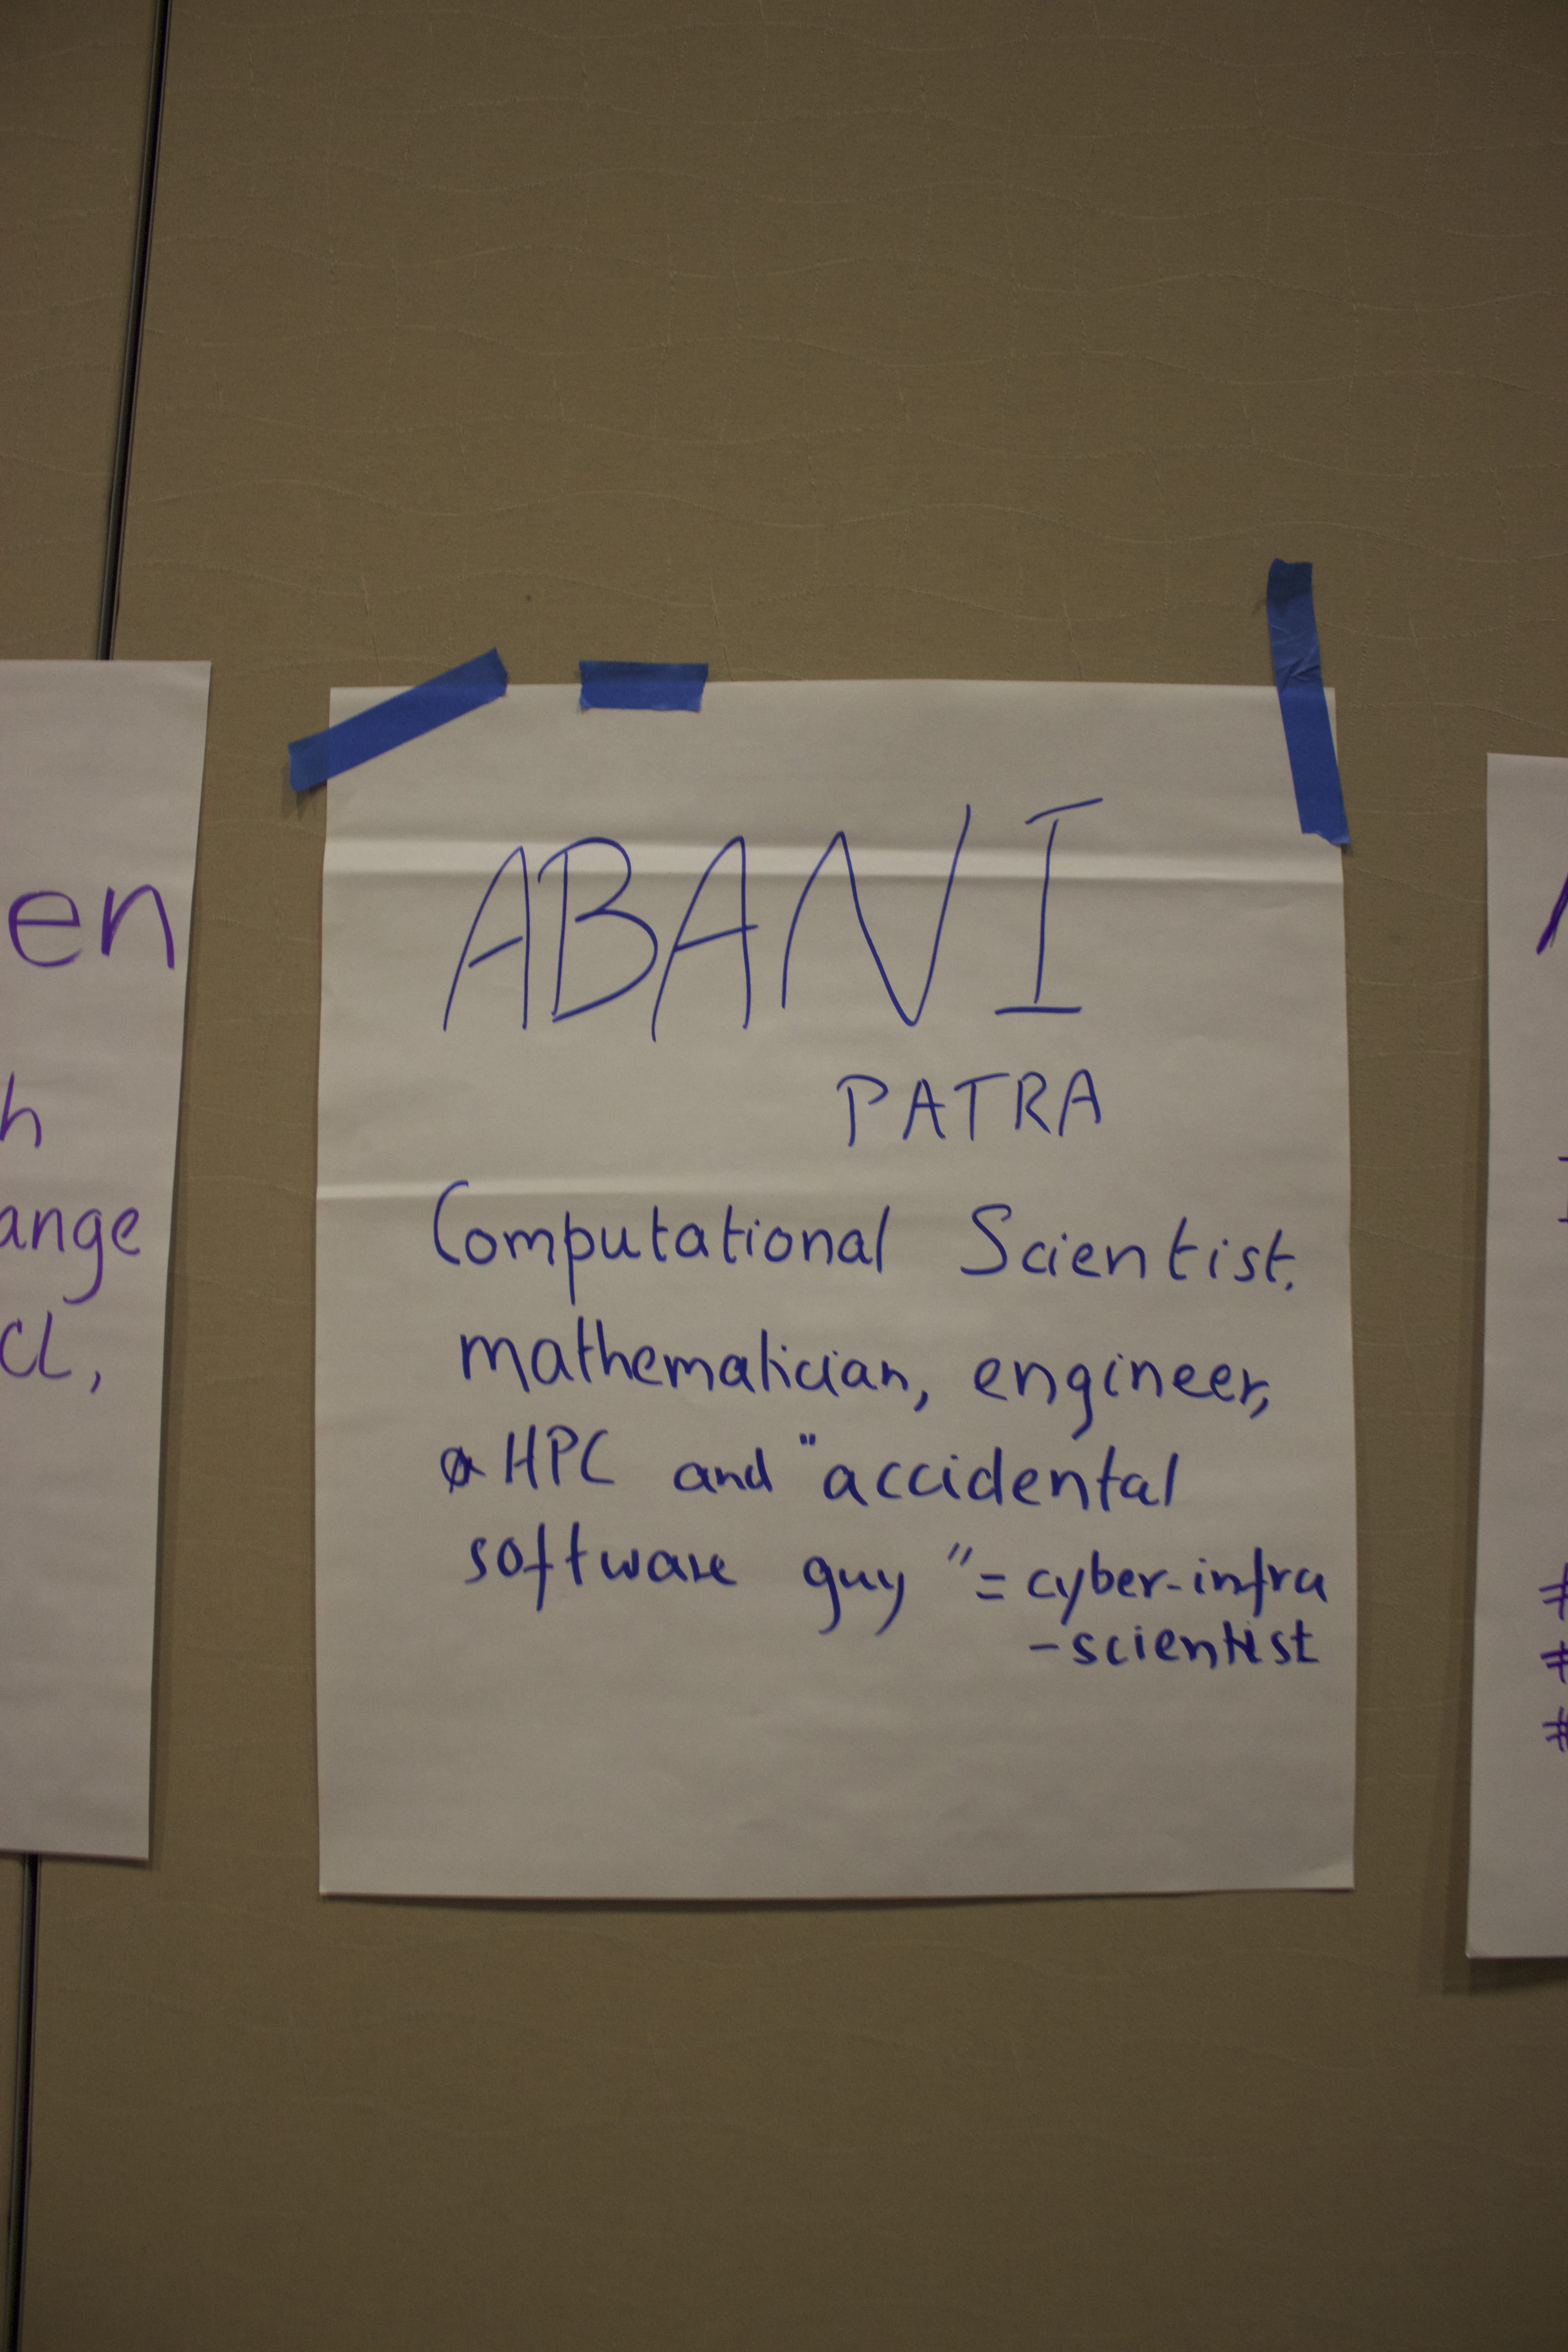 ABANI
PATRA
Computational Scientist.
mathematician, engineer,
HPC and "accidental
software guy" = cyber-infra
-scientist
en
h
ange
CL,
#
#
#